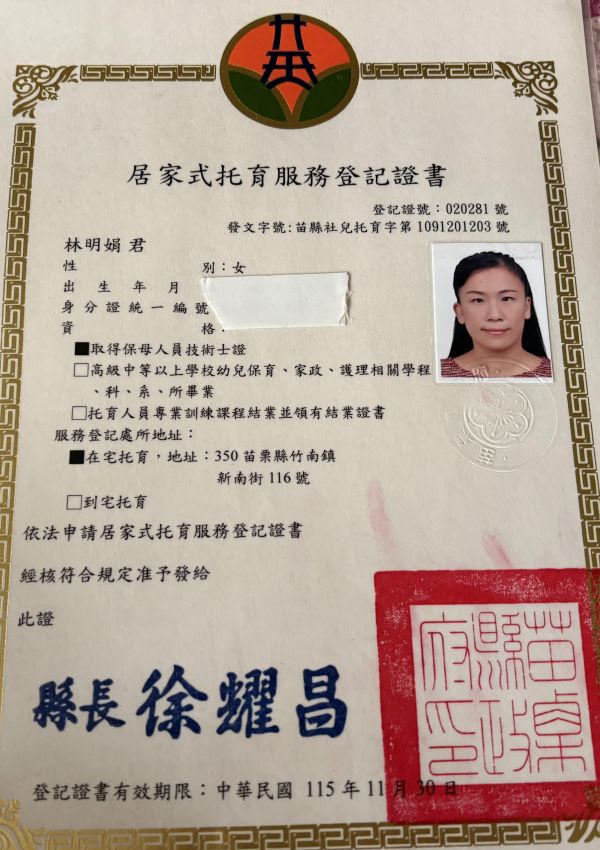 居家式托育服務登記證書
登記證號：020281 號
發文字號:苗縣社兒托育字第 1091201203 號
林明娟 君
性　　　　別：女
出 生 年 月
身分證統一編號
資　　　　格：
■取得保母人員技術士證
□高級中等以上學校幼兒保育、家政、護理相關學程
、科、系、所畢業
□托育人員專業訓練課程結業並領有結業證書
服務登記處所地址：
■在宅托育，地址：350 苗栗縣竹南鎮
新南街 116 號
□到宅托育
依法申請居家式托育服務登記證書
經核符合規定准予發給
此證
縣長 徐耀昌
苗栗縣政府印
登記證書有效期限：中華民國 115 年 11 月 30 日